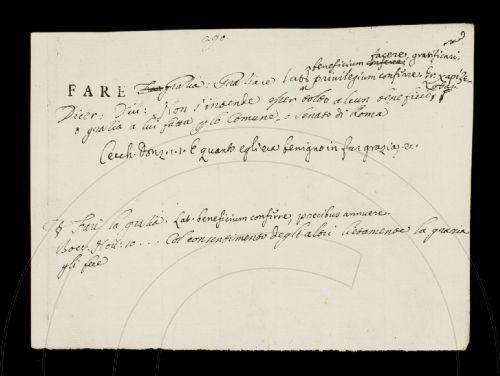 290.
facere, gratificari,
beneficium conferre
FARE Grazia: Graziare Lat: privilegium conferre, Gr. χαρίζε
Dicer: Diu: Non s'intende esser dato alcun benefice
o grazia a lui fatta p lo Comune, o Senato di Roma
Cecch. Donz. 1. 1. E quanto egli era benigno in far grazia &c.
§ Fare la grazia. Lat. beneficium conferre, precibus annuere.
Bocc. Nov: 10 ... Col consentimento degli altri lietamente la grazia
gli fece